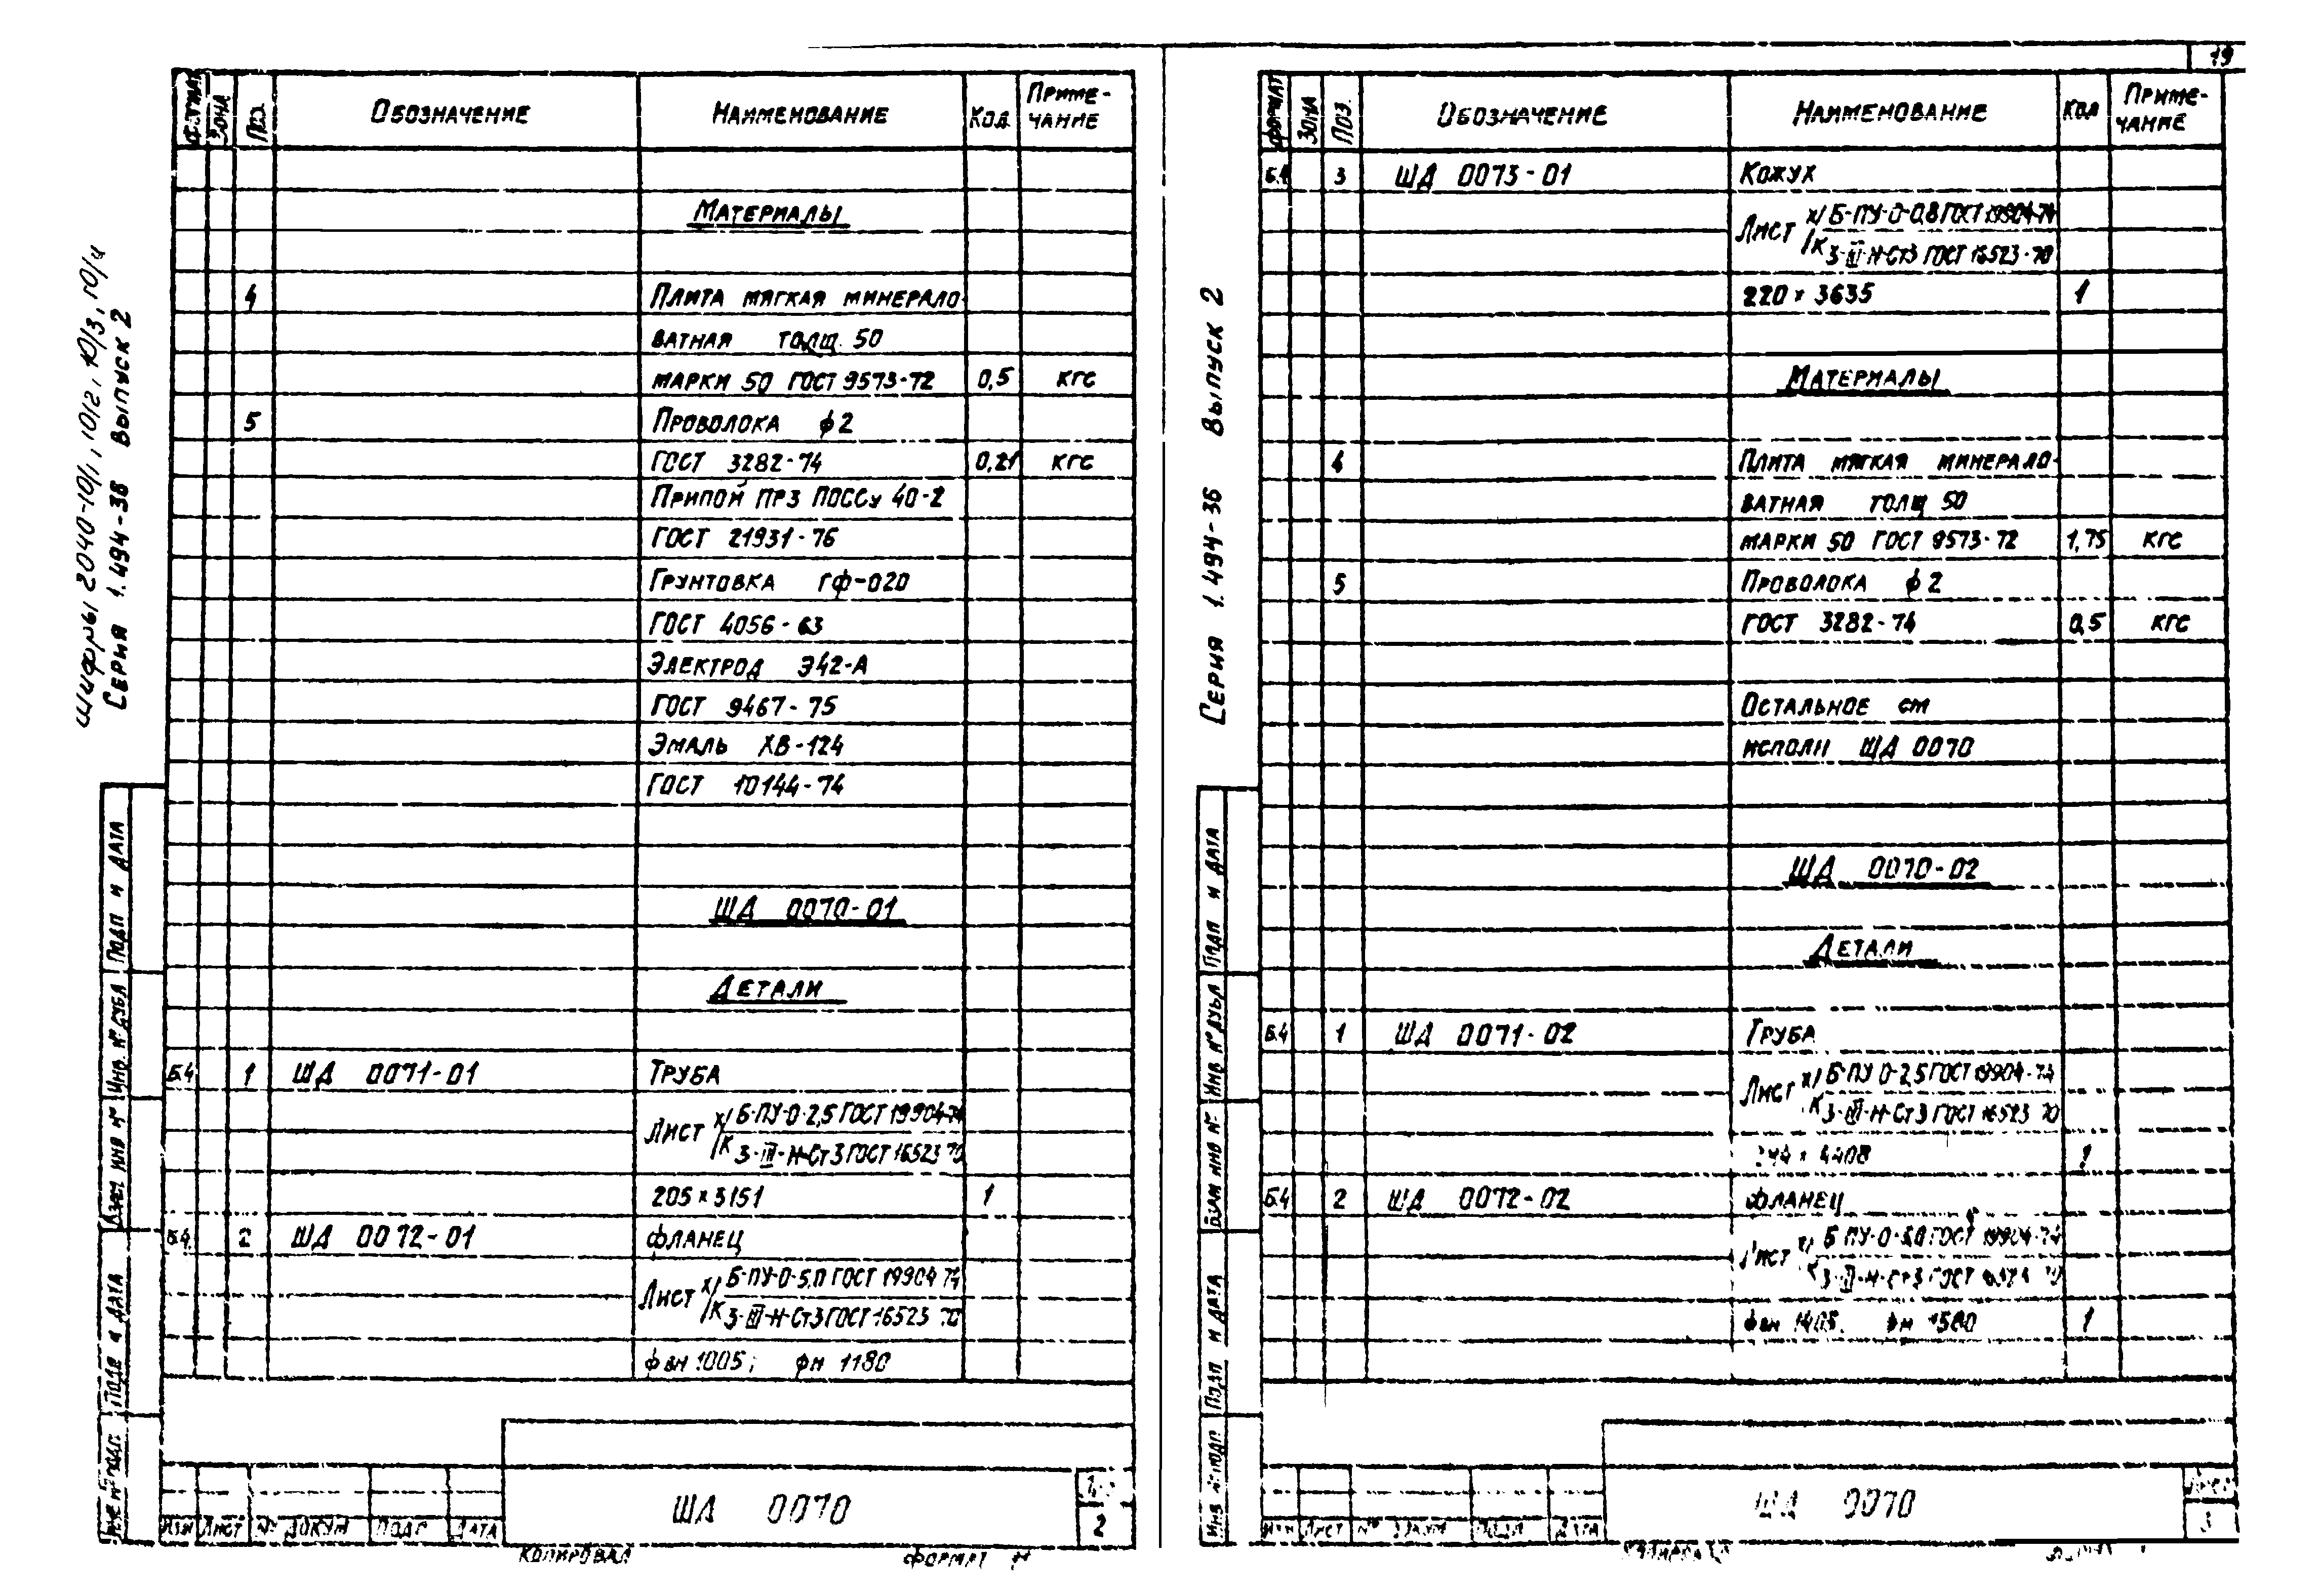 19
шифры 2040-10/1, 10/2, 10/3, 10/4
Серия 1.494-36 Выпуск 2
Формат Зона Поз. Обозначение Наименование Кол. Приме-
чание
Материалы
4 Плита мягкая минерало-
ватная толщ. 50
марки 50 ГОСТ 9573-72 0,5 кгс
5 Проволока ф2
ГОСТ 3282-74 0,21 кгс
Припой ПРЗ ПОССу 40-2
ГОСТ 21931-76
Грунтовка ГФ-020
ГОСТ 4056-63
Электрод Э42-А
ГОСТ 9467-75
Эмаль ХВ-124
ГОСТ 10144-74
ШД 0070-01
Детали
Б.4 1 ШД 0071-01 Труба
Лист х/к Б-ПУ-О-2,5 ГОСТ 19904-74
3-III-Н-Ст3 ГОСТ 16523 70
205 × 3151 1
Б.4 2 ШД 0072-01 Фланец
Лист х/к Б-ПУ-О-5,0 ГОСТ 19904 74
3-III-Н-Ст3 ГОСТ 16523 70
ф вн 1005; фн 1180
Подп и дата
Инв. № дубл
Взам инв №
Подп и дата
Инв № подл
Изм Лист № докум Подп Дата
ШД 0070
2
Копировал Формат
Серия 1.494-36 Выпуск 2
Формат Зона Поз. Обозначение Наименование Кол Приме-
чание
Б.4 3 ШД 0073-01 Кожух
Лист х/к Б-ПУ-О-0,8 ГОСТ 19904-74
3-III-Н-Ст3 ГОСТ 16523-70
220 × 3635 1
Материалы
4 Плита мягкая минерало-
ватная толщ 50
марки 50 ГОСТ 9573-72 1,75 кгс
5 Проволока ф2
ГОСТ 3282-74 0,5 кгс
Остальное см
исполн ШД 0070
ШД 0070-02
Детали
Б.4 1 ШД 0071-02 Труба
Лист х/к Б-ПУ О-2,5 ГОСТ 19904-74
3-III-Н-Ст3 ГОСТ 16523 70
× 4408 1
Б.4 2 ШД 0072-02 Фланец
Лист х/к Б ПУ-О-5,0 ГОСТ 19904-74
3-III-Н-Ст3 ГОСТ 16523 70
ф вн 1405. фн 1580 1
Подп и дата
Инв № дубл
Взам инв №
Подп и дата
Инв № подл
Изм Лист № докум Подп Дата
ШД 0070
Лист
3
Копировал